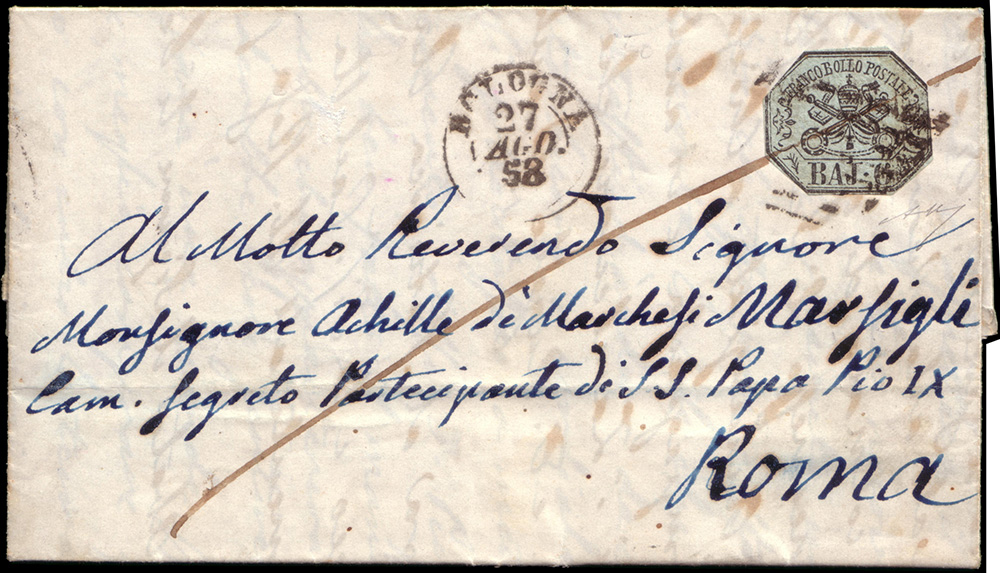 BOLOGNA
27
AGO.
58
FRANCO BOLLO POSTALE
BAJ.
Al Molto Reverendo Signore
Monsignore Achille di Marchesi Marsigli
Cam. Segreto Partecipante di S S. Papa Pio IX
Roma